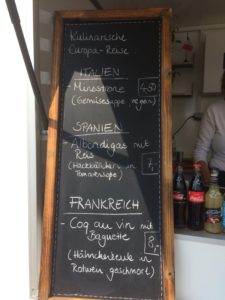 Kulinarische
Europa-Reise
ITALIEN
- Minestrone 4,50
(Gemüsesuppe, vegan)
SPANIEN
- Albondigas mit
Reis
(Hackbällchen in 7,-
Tomatensoße)
FRANKREICH
- Coq au vin mit
Baguette 8,-
(Hähnchenkeule in
Rotwein geschmort)